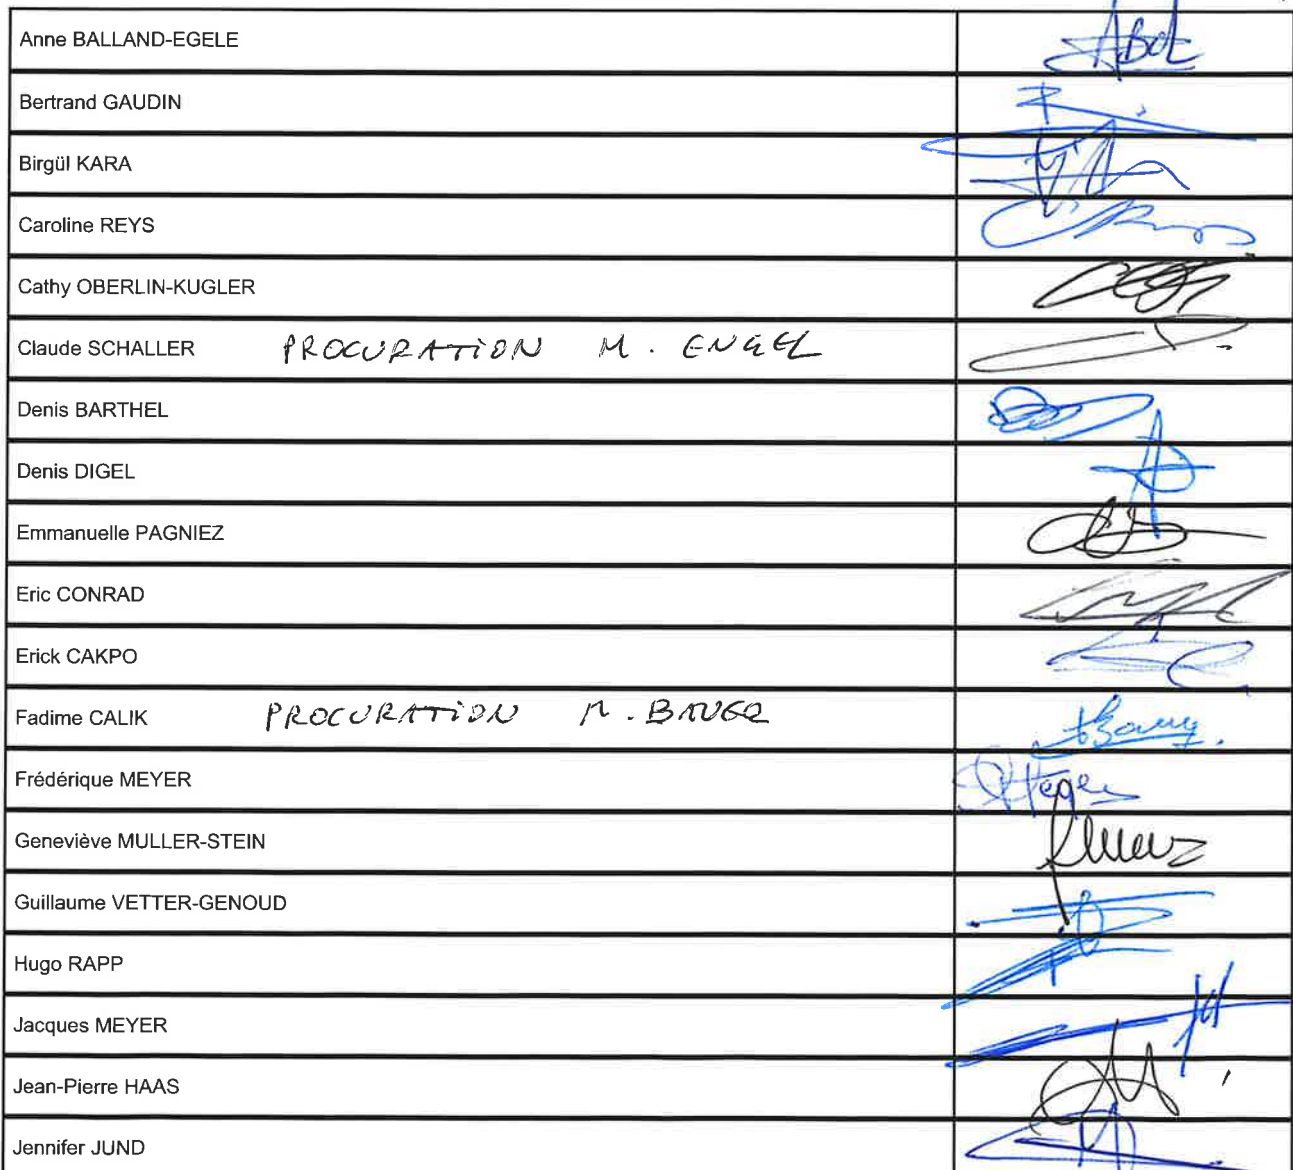 Anne BALLAND-EGELE
Bertrand GAUDIN
Birgül KARA
Caroline REYS
Cathy OBERLIN-KUGLER
Claude SCHALLER PROCURATION M. ENGEL
Denis BARTHEL
Denis DIGEL
Emmanuelle PAGNIEZ
Eric CONRAD
Erick CAKPO
Fadime CALIK PROCURATION M. BAUER
Frédérique MEYER
Geneviève MULLER-STEIN
Guillaume VETTER-GENOUD
Hugo RAPP
Jacques MEYER
Jean-Pierre HAAS
Jennifer JUND